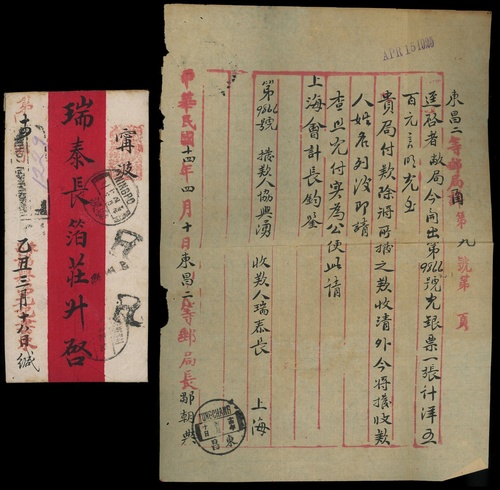 寧波
瑞泰長箔莊升啓
乙丑三月十六日緘
NINGPO
R
R
APR 15 1925
東昌二等郵局 第九號第 頁
逕啓者敝局今開出第9866號允銀票一張計洋五
百元言明允至
貴局付款除將所撥之款收清外今將撥收款
人姓名列後即請
查照允付實為公便此請
上海會計長鈞鑒
第9866號 撥款人協興湧 收款人瑞泰長 上海
中華民國十四年四月十日東昌二等郵局長鄒朝典
TUNGCHANG
東昌